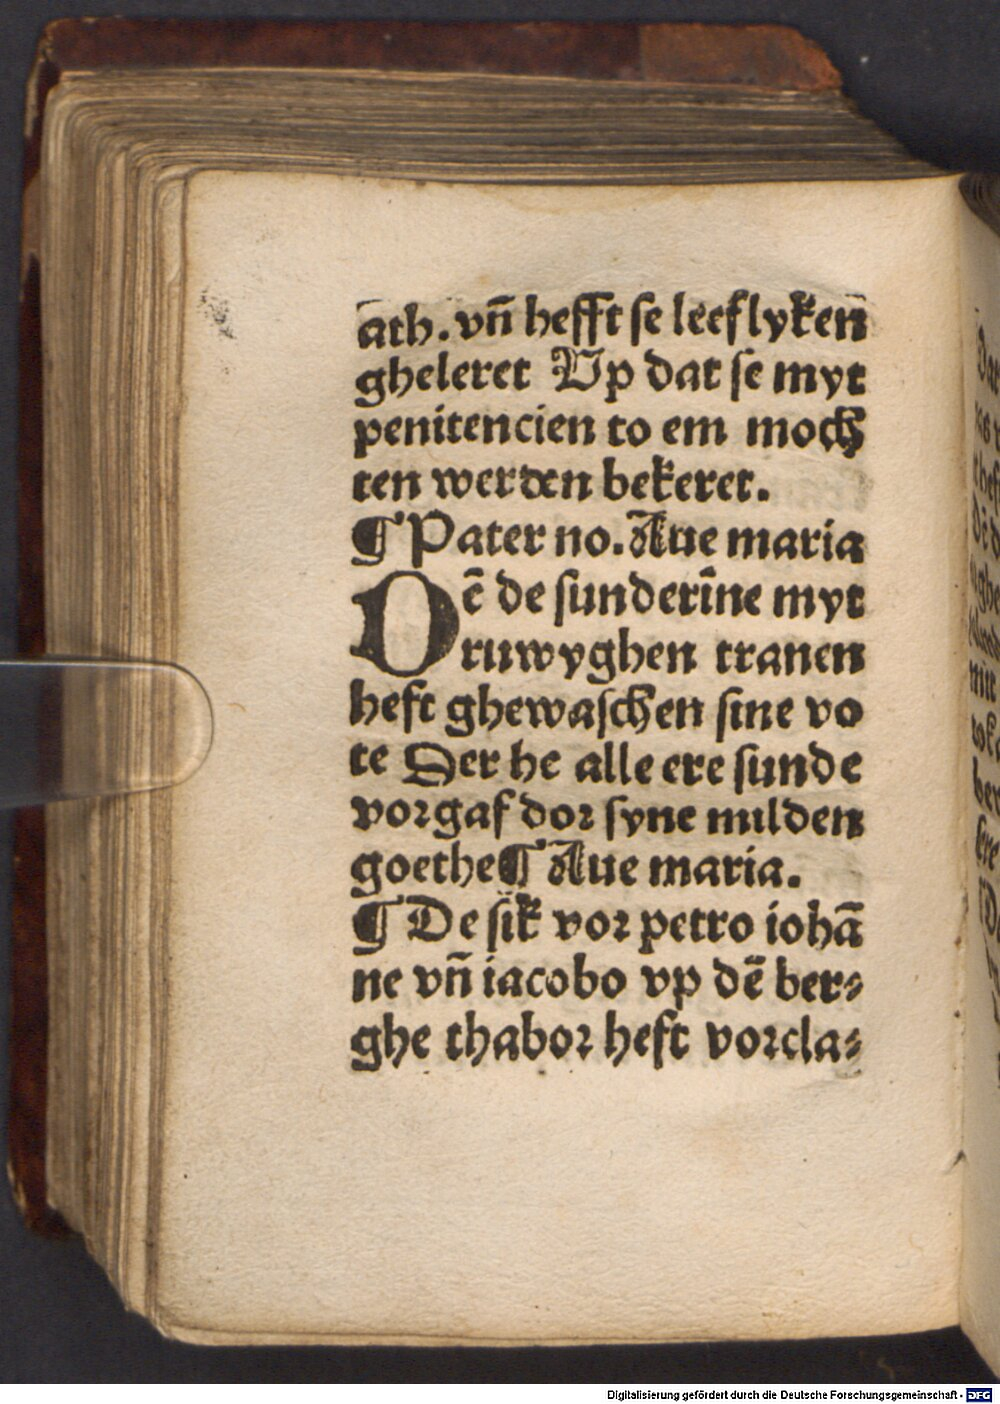 ath. vn̄ hefft se leeflyken
gheleret Up dat se myt
penitencien to em moch
ten werden bekeret.
¶ Pater no. Aue maria
Oē de sunderīne myt
ruwyghen tranen
heft ghewaschen sine vo
te Der he alle ere sunde
vorgaf dor syne milden
goethe ¶ Aue maria.
¶ De sik vor petro iohā
ne vn̄ iacobo vp dē ber⸗
ghe thabor heft vorcla⸗
Digitalisierung gefördert durch die Deutsche Forschungsgemeinschaft - DFG